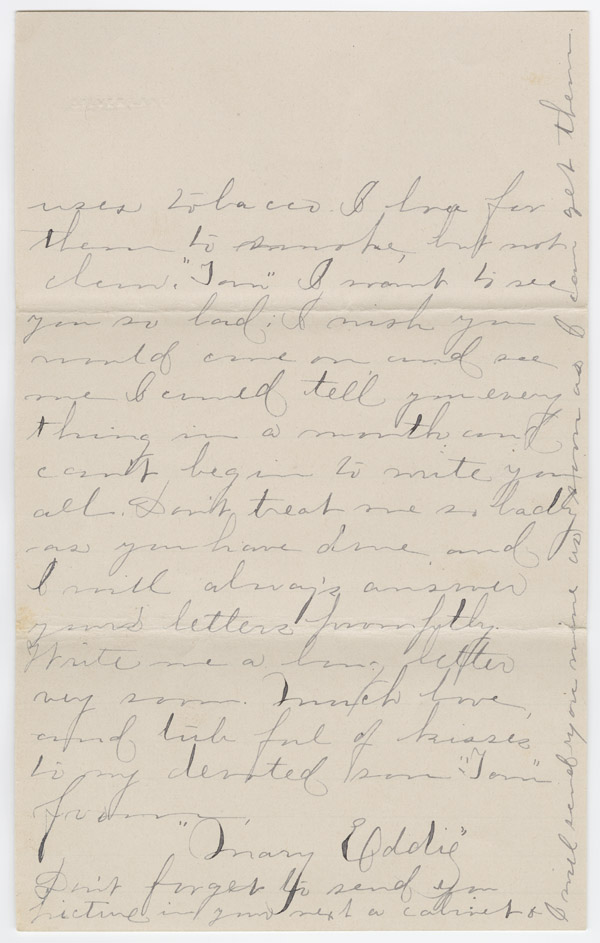 uses tobacco. I love for
them to smoke, but not
chew. "Tom" I want to see
you so bad; I wish you
would come on and see
me I could tell you every
thing in a month and
can't begin to write you
all. Don't treat me so badly
as you have done and
I will always answer
your letters promptly.
Write me a long letter
very soon. Much love,
and tub full of kisses
to my devoted "Tom"
from,
"Mary Eddie"
Don't forget to send your
picture in your next a cabinet &
I will send you mine as soon as I can get them.